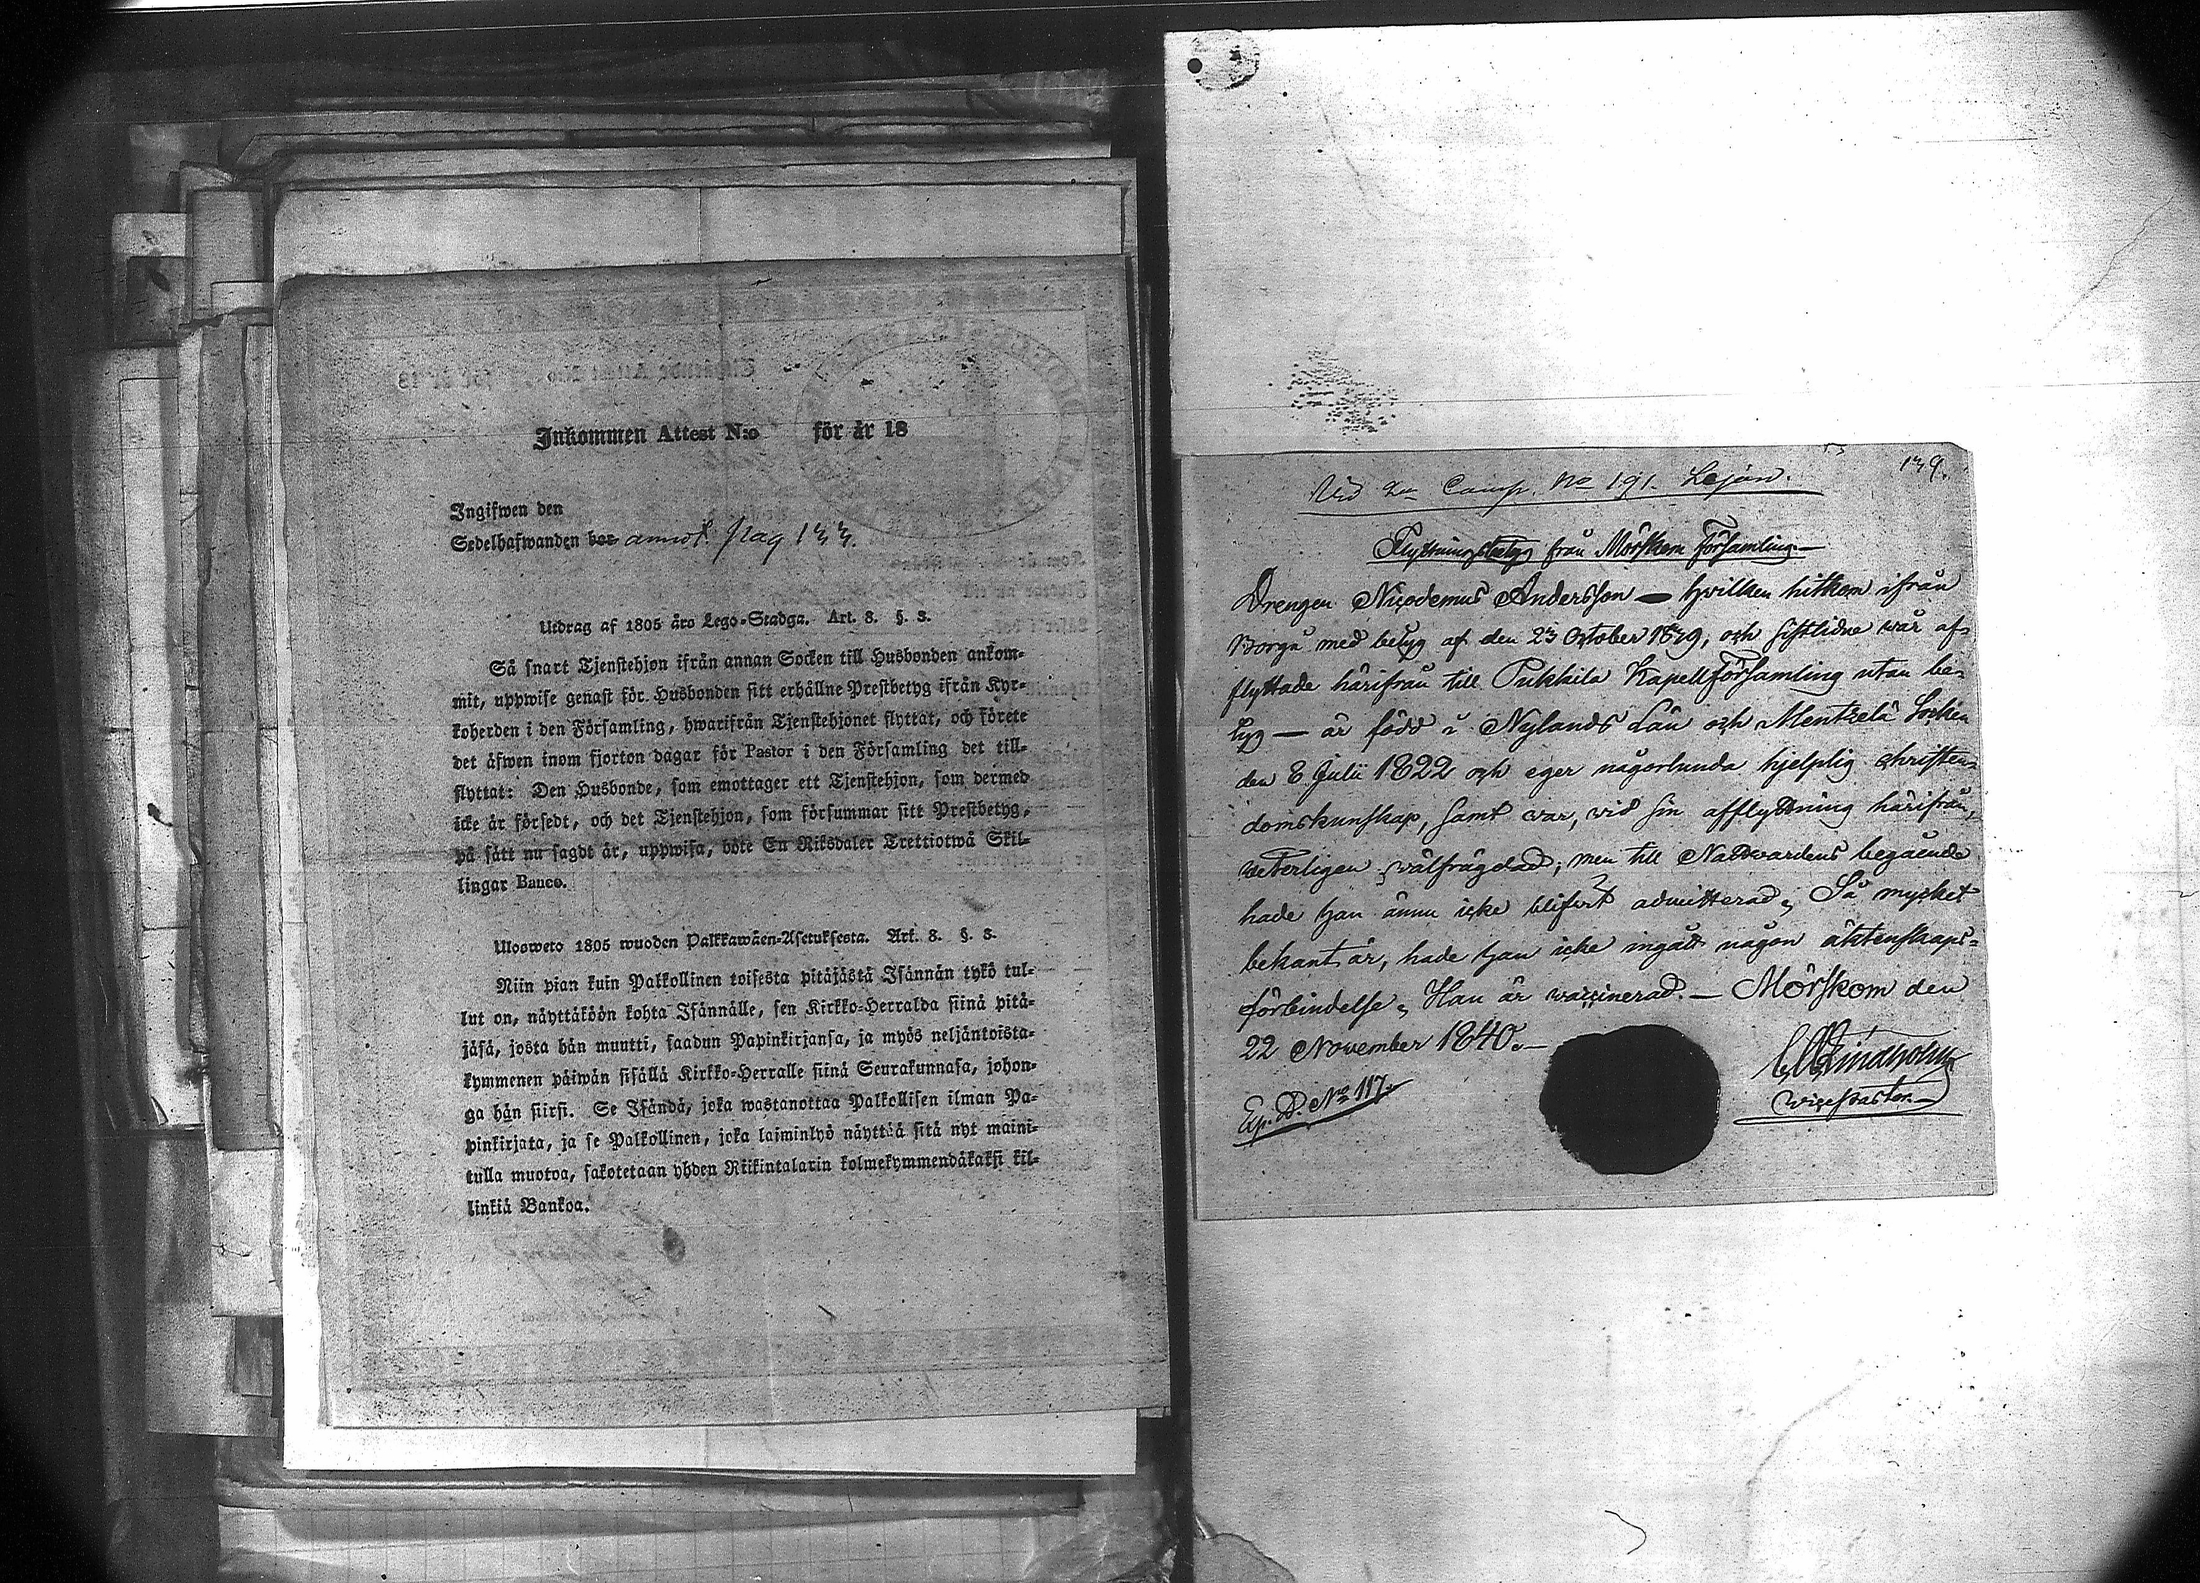 Inkommen Attest N:o för år 18
Ingifwen den
Sedelhafwanden bor annot. pag 133.
Utdrag af 1805 års Lego-Stadga. Art. 8. §. 3.
Så snart Tjenstehjon ifrån annan Socken till Husbonden ankom-
mit, uppwise genast för Husbonden sitt erhållne Prestbetyg ifrån Kyr-
koherden i den Församling, hwarifrån Tjenstehjonet flyttat, och förete
det äfwen inom fjorton dagar för Pastor i den Församling det till-
flyttat: Den Husbonde, som emottager ett Tjenstehjon, som dermed
icke är försedt, och det Tjenstehjon, som försummar sitt Prestbetyg,
på sätt nu sagdt är, uppwisa, böte En Riksdaler Trettiotwå Skil-
lingar Banco.
Ulosweto 1805 wuoden Palkkawäen-Asetuksesta. Art. 8. §. 3.
Niin pian kuin Palkollinen toisesta pitäjästä Isännän tykö tul-
lut on, näyttäköön kohta Isännälle, sen Kirkko-Herralda siinä pitä-
jäsä, josta hän muutti, saadun Papinkirjansa, ja myös neljäntoista-
kymmenen päiwän sisällä Kirkko-Herralle siinä Seurakunnasa, johon-
ga hän siirsi. Se Isändä, joka wastanottaa Palkollisen ilman Pa-
pinkirjata, ja se Palkollinen, joka laiminlyö näyttää sitä nyt maini-
tulla muotoa, sakotetaan yhden Riikintalarin kolmekymmendäkaksi kil-
linkiä Bankoa.
139.
Vid Comp. No 191. Lejon.
Flyttningsbetyg från Mörskom Församling
Drengen Nicodemus Andersson — hvilken hitkom ifrån
Borgå med betyg af den 23 October 1839, och sistlidne wår af-
flyttade härifrån till Pukkila Kapellförsamling utan be-
tyg — är född i Nylands Län och Mentzelä Socken
den 8 Julii 1822 och eger någorlunda hjelplig christen-
domskunskap, samt war, wid sin afflyttning härifrån,
weterligen wälfrägdad; men till Nattvardens begående
hade han ännu icke blifvit admitterad, Så mycket
bekant är, hade han icke ingått någon äktenskaps-
förbindelse, Han är waccinerad. — Mörskom den
22 November 1840. —
Lindholm
vicePastor.
Exp. D. No 117.